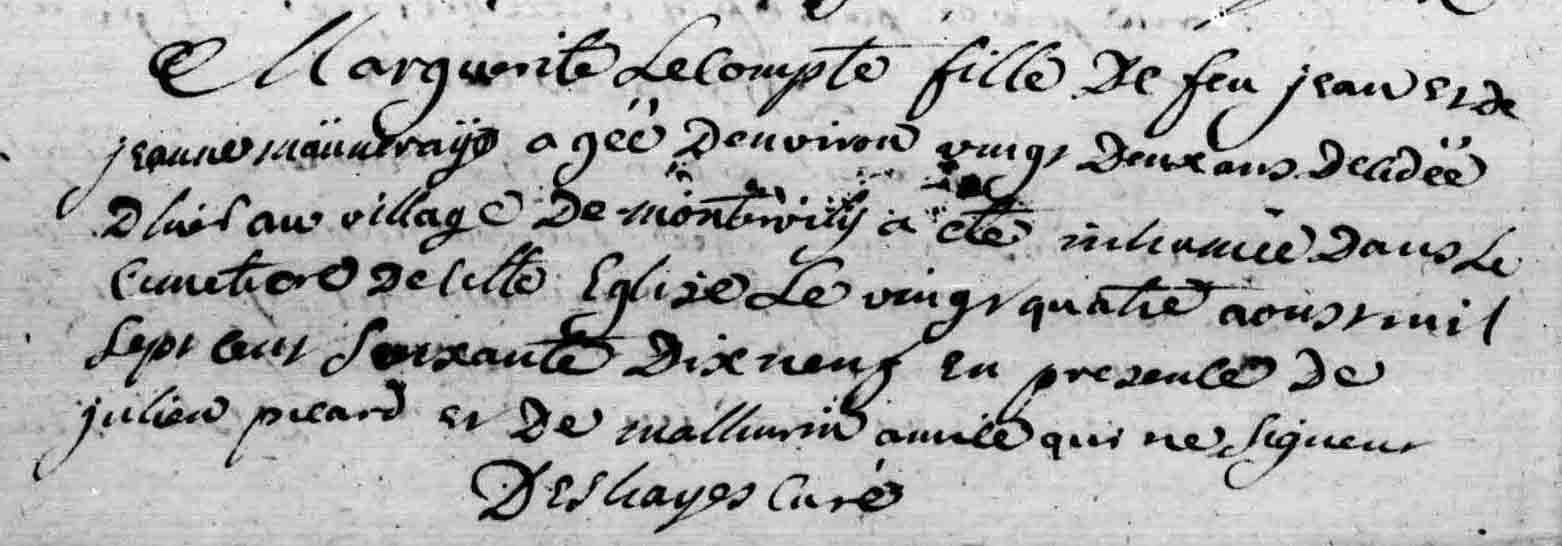 Marguerite Lecompte fille De feu jean et de
jeanne agée D'environ vingt Deux ans Decedée
D'hier au village De a été inhumée Dans Le
Cimetiere De cette Eglise Le vingt quatre aoust mil
Sept cent Soixante Dix neuf En presence De
julien picard et De mathurin amice qui ne Signent
Deshayes Curé